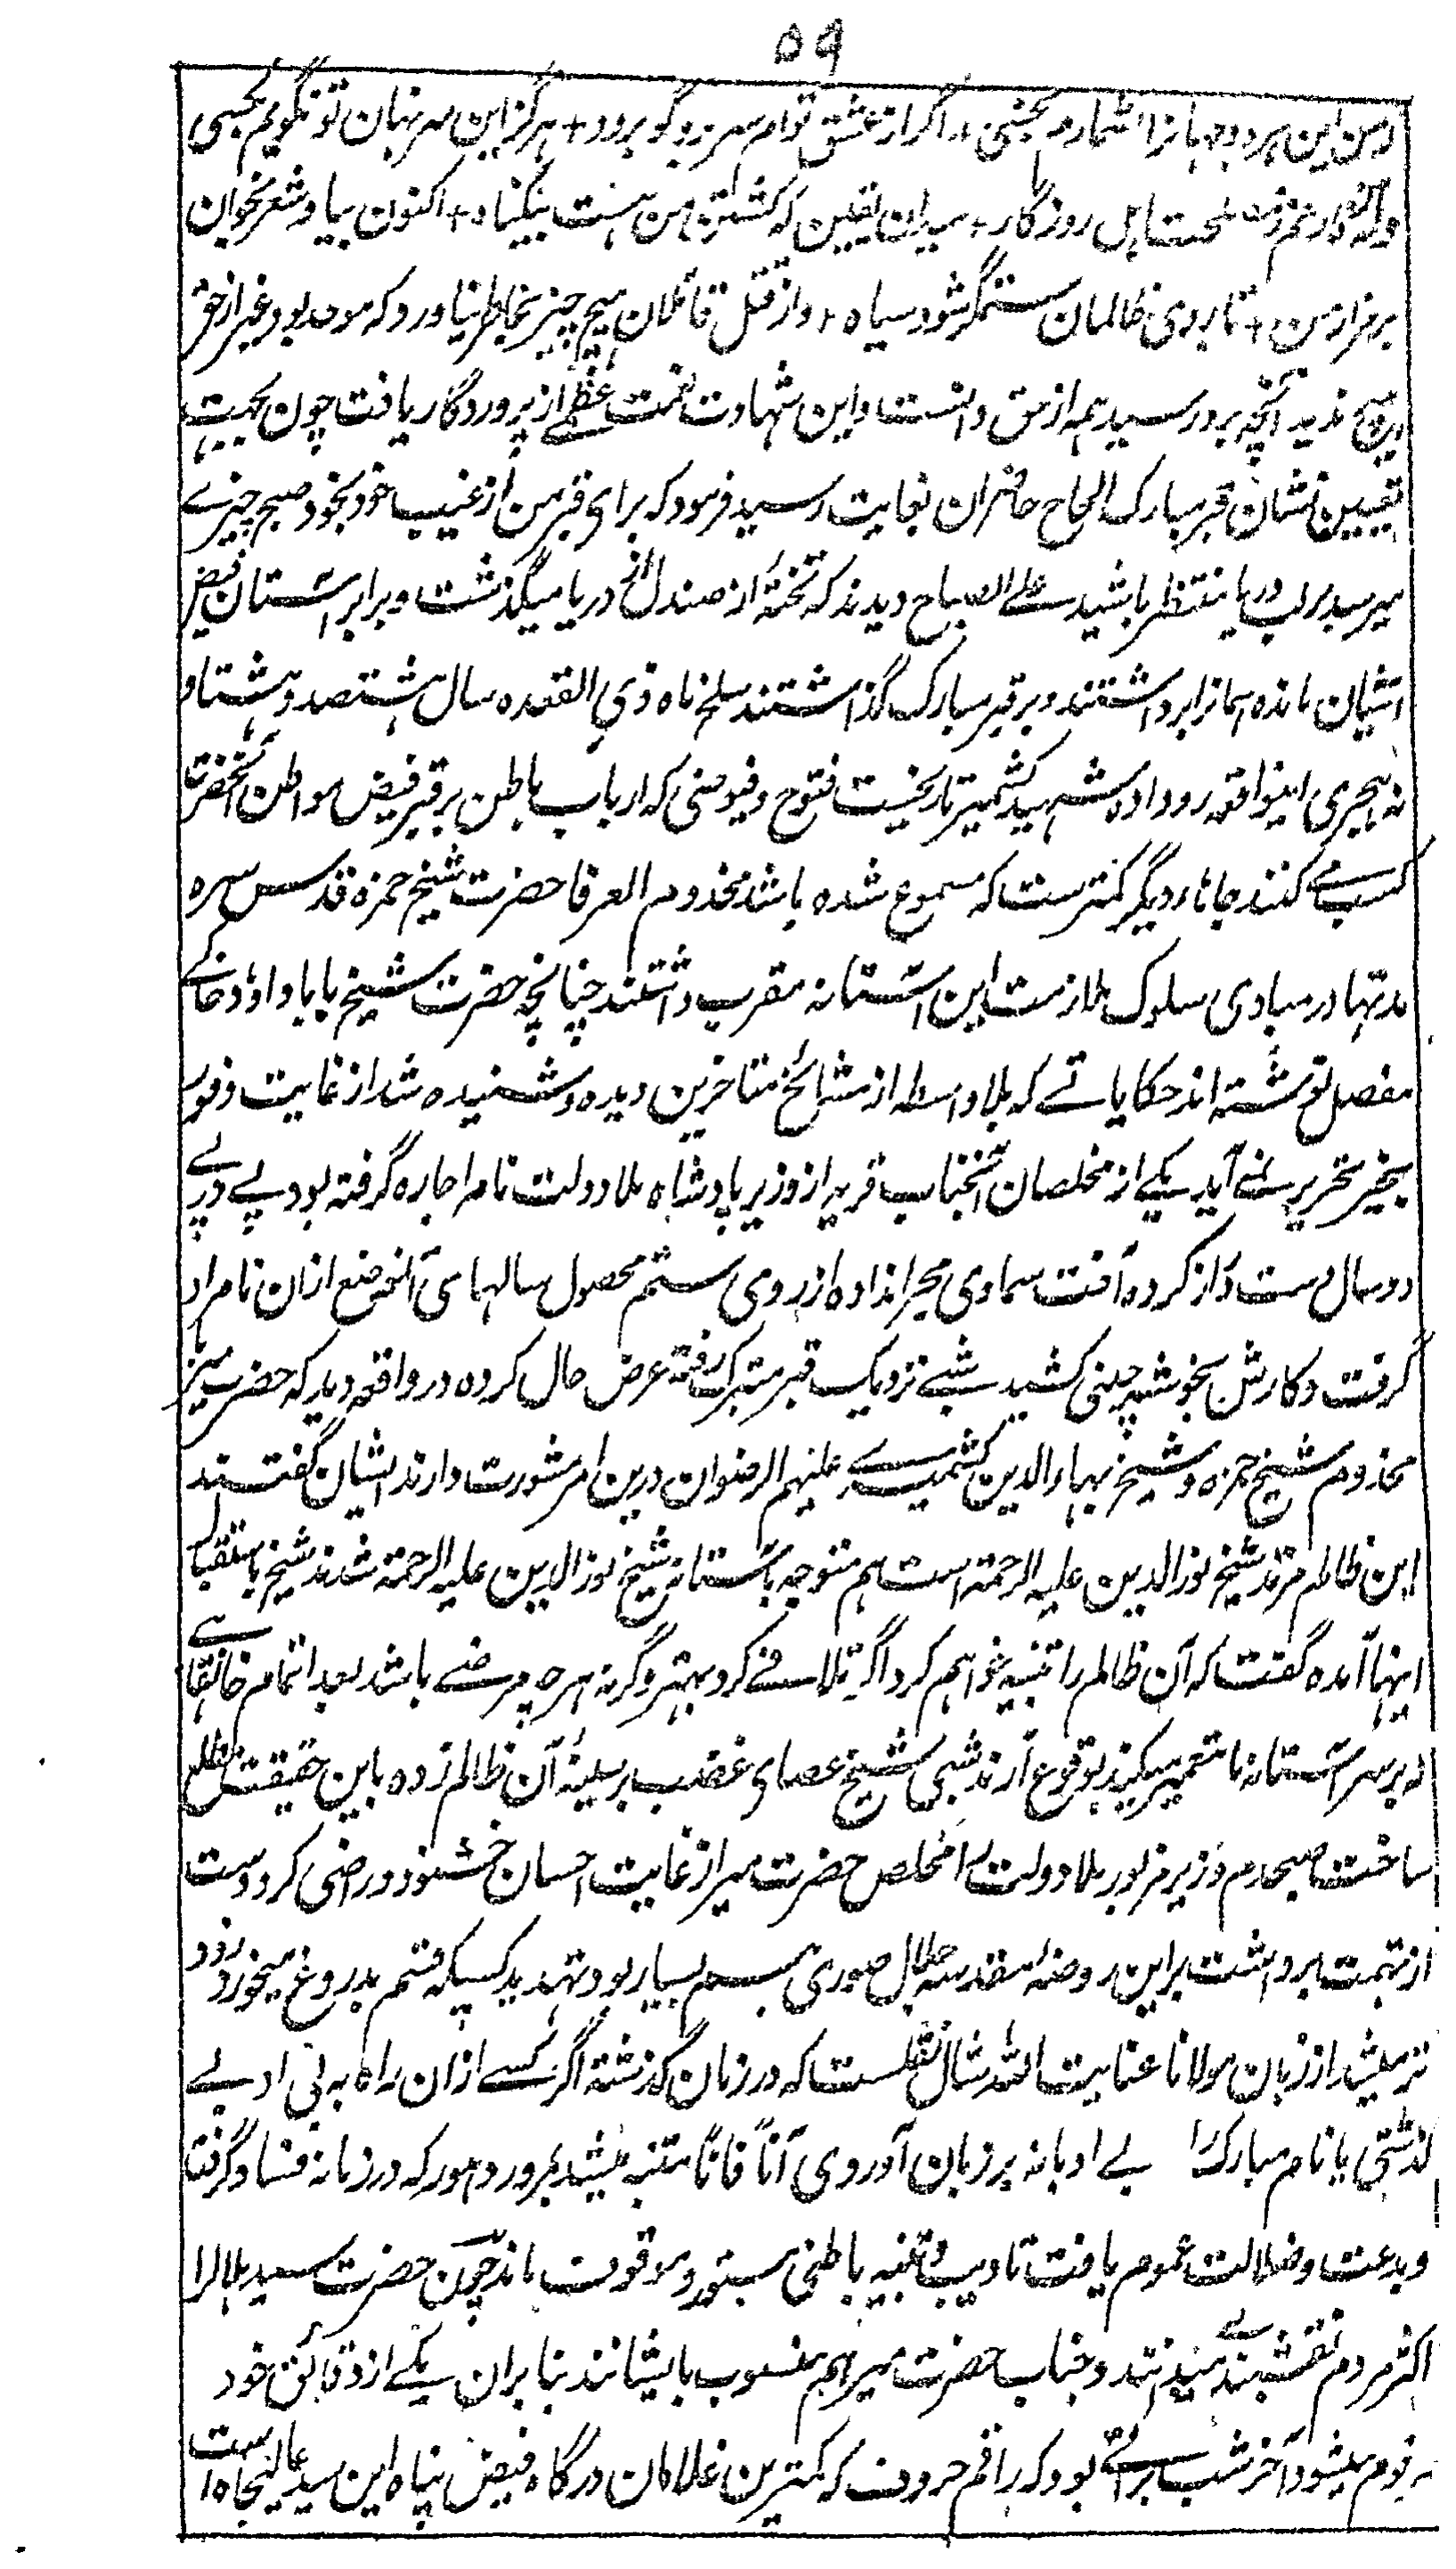 ۵۹
ومن این هر دو جهانرا شمارم بجسی + اگر از عشق توام سر برود گو برود + هرگز این سر نهان تو نگویم بکسی
روزگار + میدان یقین که کشتن من هست بیگناه + اکنون بیا و شعر بخوان
بر مزار من + تا روی ظالمان ستمگر شود سیاه + و از قتل قاتلان هیچ چیز بخاطر نیاورد که موحد بود غیر از حق
هیچ ندید آنچه برو رسید همه از حق دانست و این شهادت نعمت عظمے از پروردگار یافت چون بجهت
تعیین نشان قبر مبارک الحاح حاضران بغایت رسید فرمود که برای قبر من از غیب خود بخود صبح چیزے
میرسد بر لب دریا منتظر باشید علے الصباح دیدند که تختهٔ از صندل در دریا میگذشت و برابر آستان فیض
آشیان مانده همانرا برداشتند و بر قبر مبارک گذاشتند سلخ ماه ذی القعده سال هشتصد و هشتاد
نه هجری اینواقعه رو داده شهید کشمیر تاریخست فتوح و فیوضی که ارباب باطن بر قبر فیض مواطن آنحضرت
کسب مے کنند جاهاء دیگر کمترست که مسموع شده باشد مخدوم العرفا حضرت شیخ حمزه قدس سره
مدتها در مبادی سلوک ملازمت این آستانه مقرب داشتند چنانچه حضرت شیخ بابا داؤد خاکے
مفصل نوشته اند حکایاتے که بلا واسطه از مشائخ متاخرین دیده و شنیده شد از غایت وفور
بحیز تحریر نمے آید یکے از مخلصان آنجناب قریه از وزیر پادشاه ملا دولت نام اجاره گرفته بود پے در پے
دو سال دست داز کرده آفت سماوی مجرا نداده از روی ستم محصول سالهای آنموضع ازان نامراد
گرفت و کارش بخوشه چینی کشید شبے نزدیک قبر متبرک رفته عرض حال کرده در واقعه دید که حضرت میر
مخدوم شیخ حمزه و شیخ بهاءالدین کشمیرے علیهم الرضوان درین امر مشورت دارند ایشان گفتند
این ظالم مرتد شیخ نورالدین علیه الرحمة است هم متوجه باستانهٔ شیخ نورالدین علیه الرحمة شدند شیخ باستقبال
اینها آمده گفت که آن ظالم را تنبیه خواهم کرد اگر تلافے کرد بهتر و گرنه هر چه مرضے باشد بعد اتمام خانقاهے
که بر سر آستانه ما تعمیر میکند بوقوع آرند شبی شیخ عصای غضب بر سینهٔ آن ظالم زده باین حقیقت مطلع
ساخت صبحدم وزیر مزبور ملا دولت مخلص حضرت میر از غایت احسان خشنود و راضی کرد و دست
از تهمت برداشت براین روضهٔ مقدسه جلال صوری هم بسیار بود و تهدید کسیکه قسم بدروغ میخورد زود
تر میشد از زبان مولانا عنایت الله شال نقلست که در زمان گذشته اگر کسے ازان راه به بی ادبے
گذشتی یا نام مبارک را بے ادبانه بر زبان آوردی آناً فاناً متنبه میشد بمرور دهور که در زمانه فساد گرفت
و بدعت و ضلالت عموم یافت تادیب و تنبیه باطنی مستور و موقوف ماند چون حضرت سید هلال را
اکثر مردم نقشبندے میدانند و جناب حضرت میر هم منسوب بایشانند بنابران یکے از دقائق خود
مرقوم میشود آخر شب براتے بود که راقم حروف که کمترین غلامان درگاه فیض پناه این سید عالیجاه است